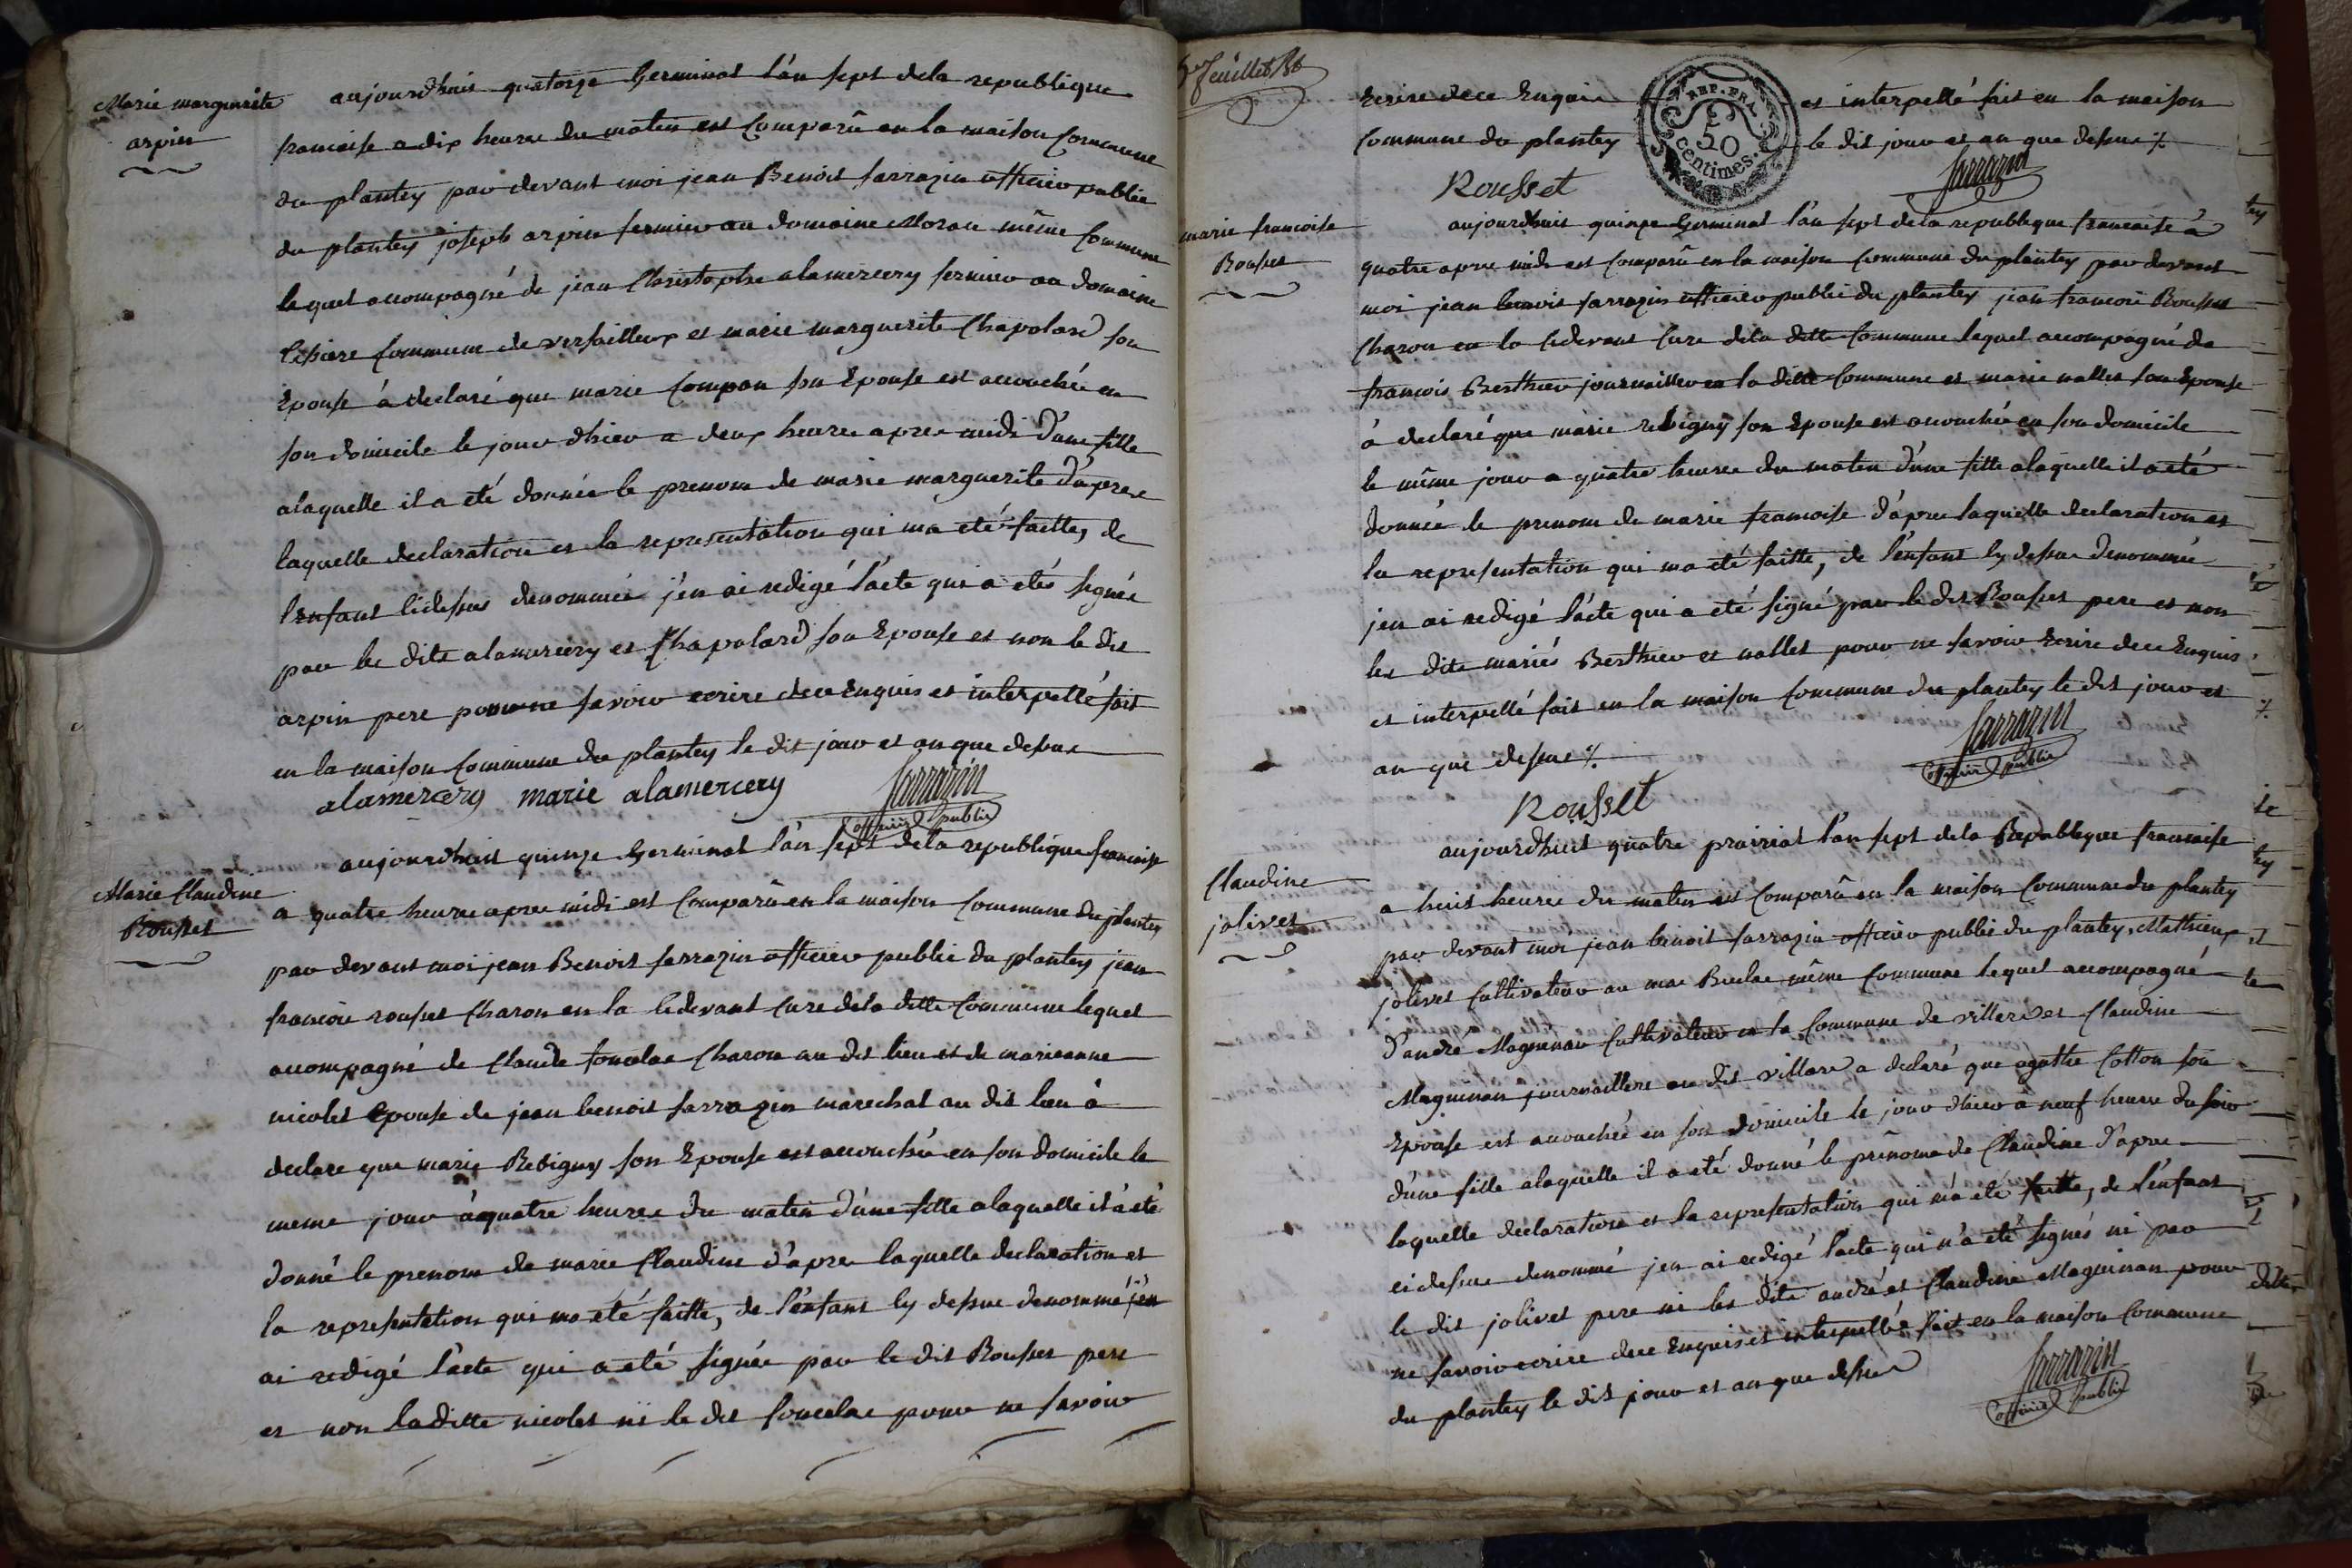 Marie marguerite
arpin
aujourdhuis quatorze Germinal l'an sept dela republique
francoise a dix heures du matin est Comparû en la maison Commune
du plantey par devant moi jean Benoit sarrazin officier public
du plantey joseph arpin fermier au domaine Moran même Commune
lequel accompagné de jean Christophe alamercery fermier au domaine
Commune de versailleux et marie marguerite Chapolard son
Epouse à declaré que marie Compan son Epouse est accouchée en
son domicile le jour dhier a deux heures apres midi d'une fille
alaquelle il a eté donnée le prenom de marie marguerite d'apres
laquelle declaration et la representation qui ma eté faitte, de
l'enfant cidessus denommée j'en ai redigé l'acte qui a etés signée
par les dits alamercery et Chapolard son Epouse et non le dit
arpin pere pour ne savoir ecrire dece Enquis et interpellé fait
en la maison Commune du plantey le dit jour et an que dessus
alamercery marie alamercery Sarrazin
officier public
Marie Claudine
Rousset
aujourdhuis quinze Germinal l'an sept dela republique francoise
a quatre heures apres midi est Comparû en la maison Commune du plantey
par devant moi jean Benoit sarrazin officier public du plantey jean
francois rousset Charon en la cidevant Cure dela ditte Commune lequel
accompagné de Claude Charon au dit lieu et de marieanne
nicolet Epouse de jean benoit sarrazin marechal au dit lieu à
declare que marie Rebigny son Epouse est accouchée en son domicile le
meme jour à quatre heures du matin d'une fille alaquelle il a eté
donné le prenom de marie Claudine d'apres laquelle declaration et
la representation qui ma eté faitte, de l'enfant cy dessus denommé j'en
ai redigé l'acte qui a eté signée par le dit Rousset pere
et non laditte nicolet ni le dit pour ne savoir
feuillet
Ecrire dece Enquis et interpellé fait en la maison
Commune du plantey le dit jour et an que dessus %
REP. FRA.
50
centimes.
Rousset Sarrazin
marie francoise
Rousset
aujourdhuis quinze Germinal l'an sept dela republique francoise à
quatre apres midi est Comparû en la maison Commune du plantey par devant
moi jean benoit sarrazin officier public du plantey jean francois Rousset
Charon en la cidevant Cure dela ditte Commune lequel accompagné de
francois Berthier journaillier en la ditte Commune et marie nallet son Epouse
à declaré que marie rebigny son Epouse est accouchée en son domicile
le même jour a quatre heures du matin d'une fille alaquelle il a eté
donnée le prenom de marie francoise d'apres laquelle declaration et
la representation qui ma eté faitte, de l'enfant cy dessus denommée
jen ai redigé l'acte qui a eté signé par le dit Rousset pere et non
les dits mariés Berthier et nallet pour ne savoir Ecrire dece Enquis
et interpellé fait en la maison Commune du plantey le dit jour et
an que dessus %
Sarrazin
officier public
Rousset
Claudine
jolivet
aujourdhuis quatre prairial l'an sept dela Republique francoise
a huit heures du matin est Comparû en la maison Commune du plantey
par devant moi jean benoit sarrazin officier public du plantey, Mathieu
jolivet Cultivateur au mas même Commune lequel accompagné
d'andré Magninan Cultivateur en la Commune de villars et Claudine
Magninan journailliere au dit villars a declaré que agathe Cotton son
Epouse est accouchée en son domicile le jour dhier à neuf heures du soir
d'une fille alaquelle il a eté donné le prenom de Claudine d'apres
laquelle declaration et la representation qui m'a eté faitte, de l'enfant
cidessus denommé jen ai redigé l'acte qui n'a eté signés ni par
le dit jolivet pere ni les dits andré et Claudine Magninan pour
ne savoir ecrire dece Enquis et interpellés fait en la maison Commune
du plantey le dit jour et an que dessus
Sarrazin
officier public